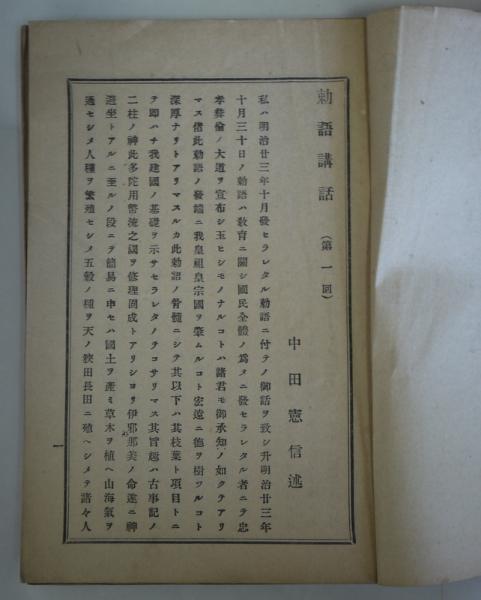 勅語講話（第一囘）
中田憲信述
私ハ明治廿三年十月發セラレタル勅語ニ付テノ御話ヲ致シ升明治廿三年
十月三十日ノ勅語ハ敎育ニ關シ國民全體ノ爲メニ發セラレタル者ニテ忠
孝彜倫ノ大道ヲ宣布シ玉ヒシモノナルコトハ諸君モ御承知ノ如クテアリ
マス偖此勅語ノ發端ニ我皇祖皇宗國ヲ肇ムルコト宏遠ニ德ヲ樹ツルコト
深厚ナリトアリマスルカ此勅語ノ骨髓ニシテ其以下ハ其枝葉ト項目トニ
テ卽ハチ我建國ノ基礎ヲ示サセラレタノテコサリマス其旨趣ハ古事記ノ
二柱ノ神此多陀用幣流之國ヲ修理固成トアリシヨリ伊邪那美ノ命遂ニ神
避坐トアルニ至ルノ段ニテ簡易ニ申セハ國土ヲ產ミ草木ヲ植ヘ山海氣ヲ
通セシメ人種ヲ繁殖セシメ五穀ノ種ヲ天ノ狹田長田ニ殖ヘシメテ諸々人
一